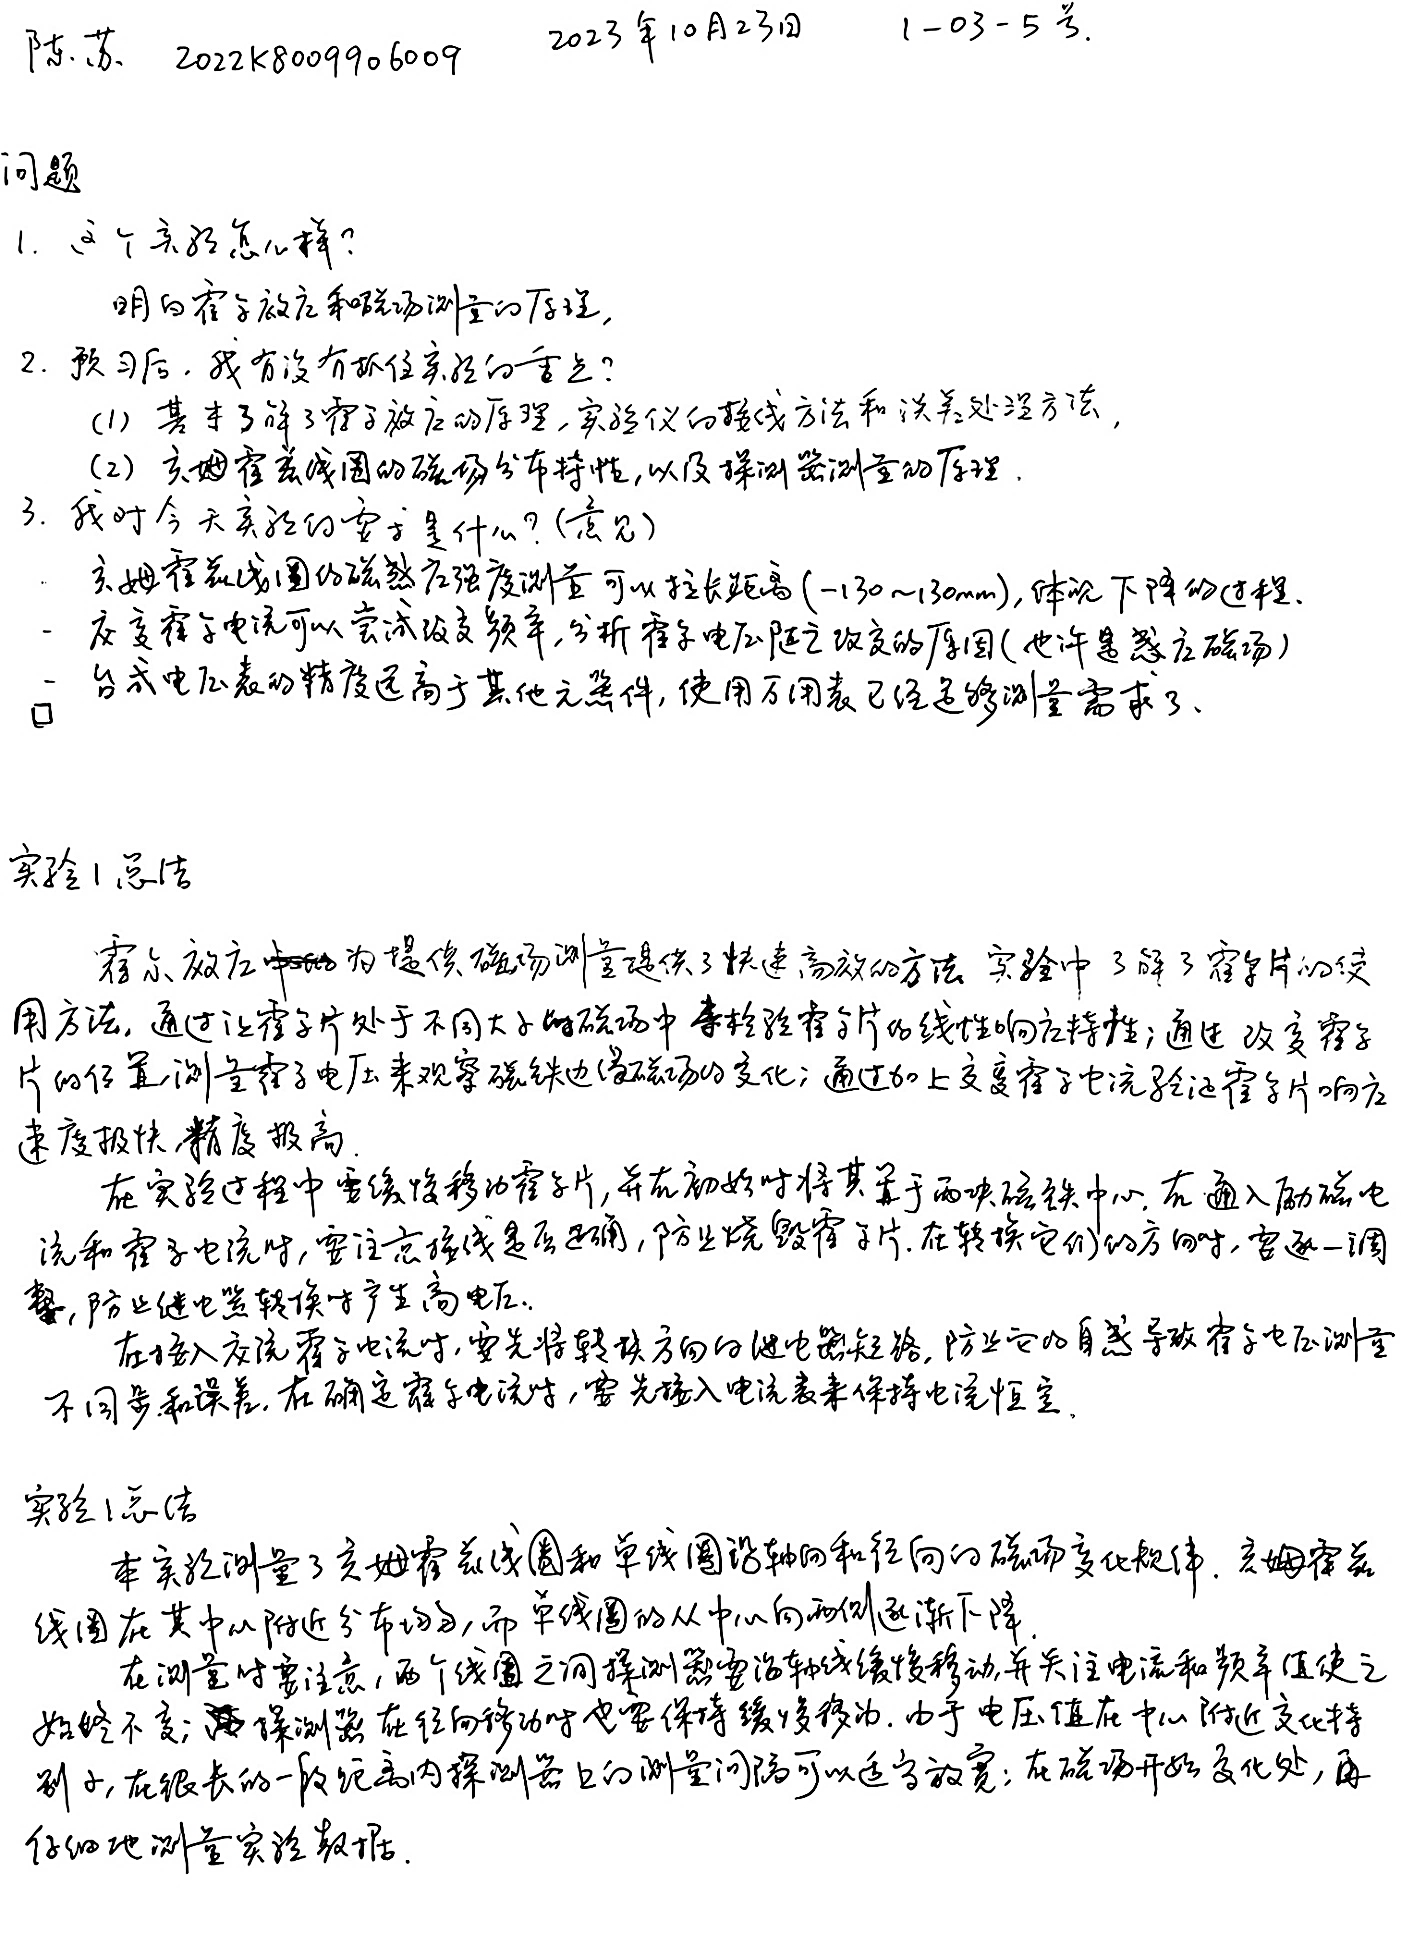 陈苏 2022K8009906009 2023年10月23日 1-03-5号.
问题
1. 这个实验怎么样?
明白霍尔效应和磁场测量的原理,
2. 预习后,我有没有抓住实验的重点?
(1) 基本了解了霍尔效应的原理,实验仪的接线方法和误差处理方法,
(2) 亥姆霍兹线圈的磁场分布特性,以及探测器测量的原理.
3. 我对今天实验的要求是什么?(意见)
- 亥姆霍兹线圈的磁感应强度测量可以拉长距离(-130~130mm),体现下降的过程.
- 交变霍尔电流可以尝试改变频率,分析霍尔电压随之改变的原因(也许是感应磁场)
- 台式电压表的精度远高于其他元器件,使用万用表已经足够测量需求了.
□
实验1总结
霍尔效应为提供磁场测量提供了快速高效的方法 实验中了解了霍尔片的使
用方法,通过让霍尔片处于不同大小的磁场中来检验霍尔片的线性响应特性;通过改变霍尔
片的位置,测量霍尔电压来观察磁铁边缘磁场的变化;通过加上交变霍尔电流验证霍尔片响应
速度极快,精度极高.
在实验过程中要缓慢移动霍尔片,并在初始时将其置于两块磁铁中心.在通入励磁电
流和霍尔电流时,要注意接线是否正确,防止烧毁霍尔片.在转换它们的方向时,要逐一调
整,防止继电器转换时产生高电压.
在接入交流霍尔电流时,要先将转换方向的继电器短路,防止它的自感导致霍尔电压测量
不同步和误差.在确定霍尔电流时,要先接入电流表来保持电流恒定.
实验1总结
本实验测量了亥姆霍兹线圈和单线圈沿轴向和径向的磁场变化规律.亥姆霍兹
线圈在其中心附近分布均匀,而单线圈的从中心向两侧逐渐下降.
在测量时要注意,两个线圈之间探测器要沿轴线缓慢移动,并关注电流和频率值使之
始终不变;探测器在径向移动时也要保持缓慢移动.由于电压值在中心附近变化特
别小,在很长的一段距离内探测器上的测量间隔可以适当放宽;在磁场开始变化处,再
仔细地测量实验数据.